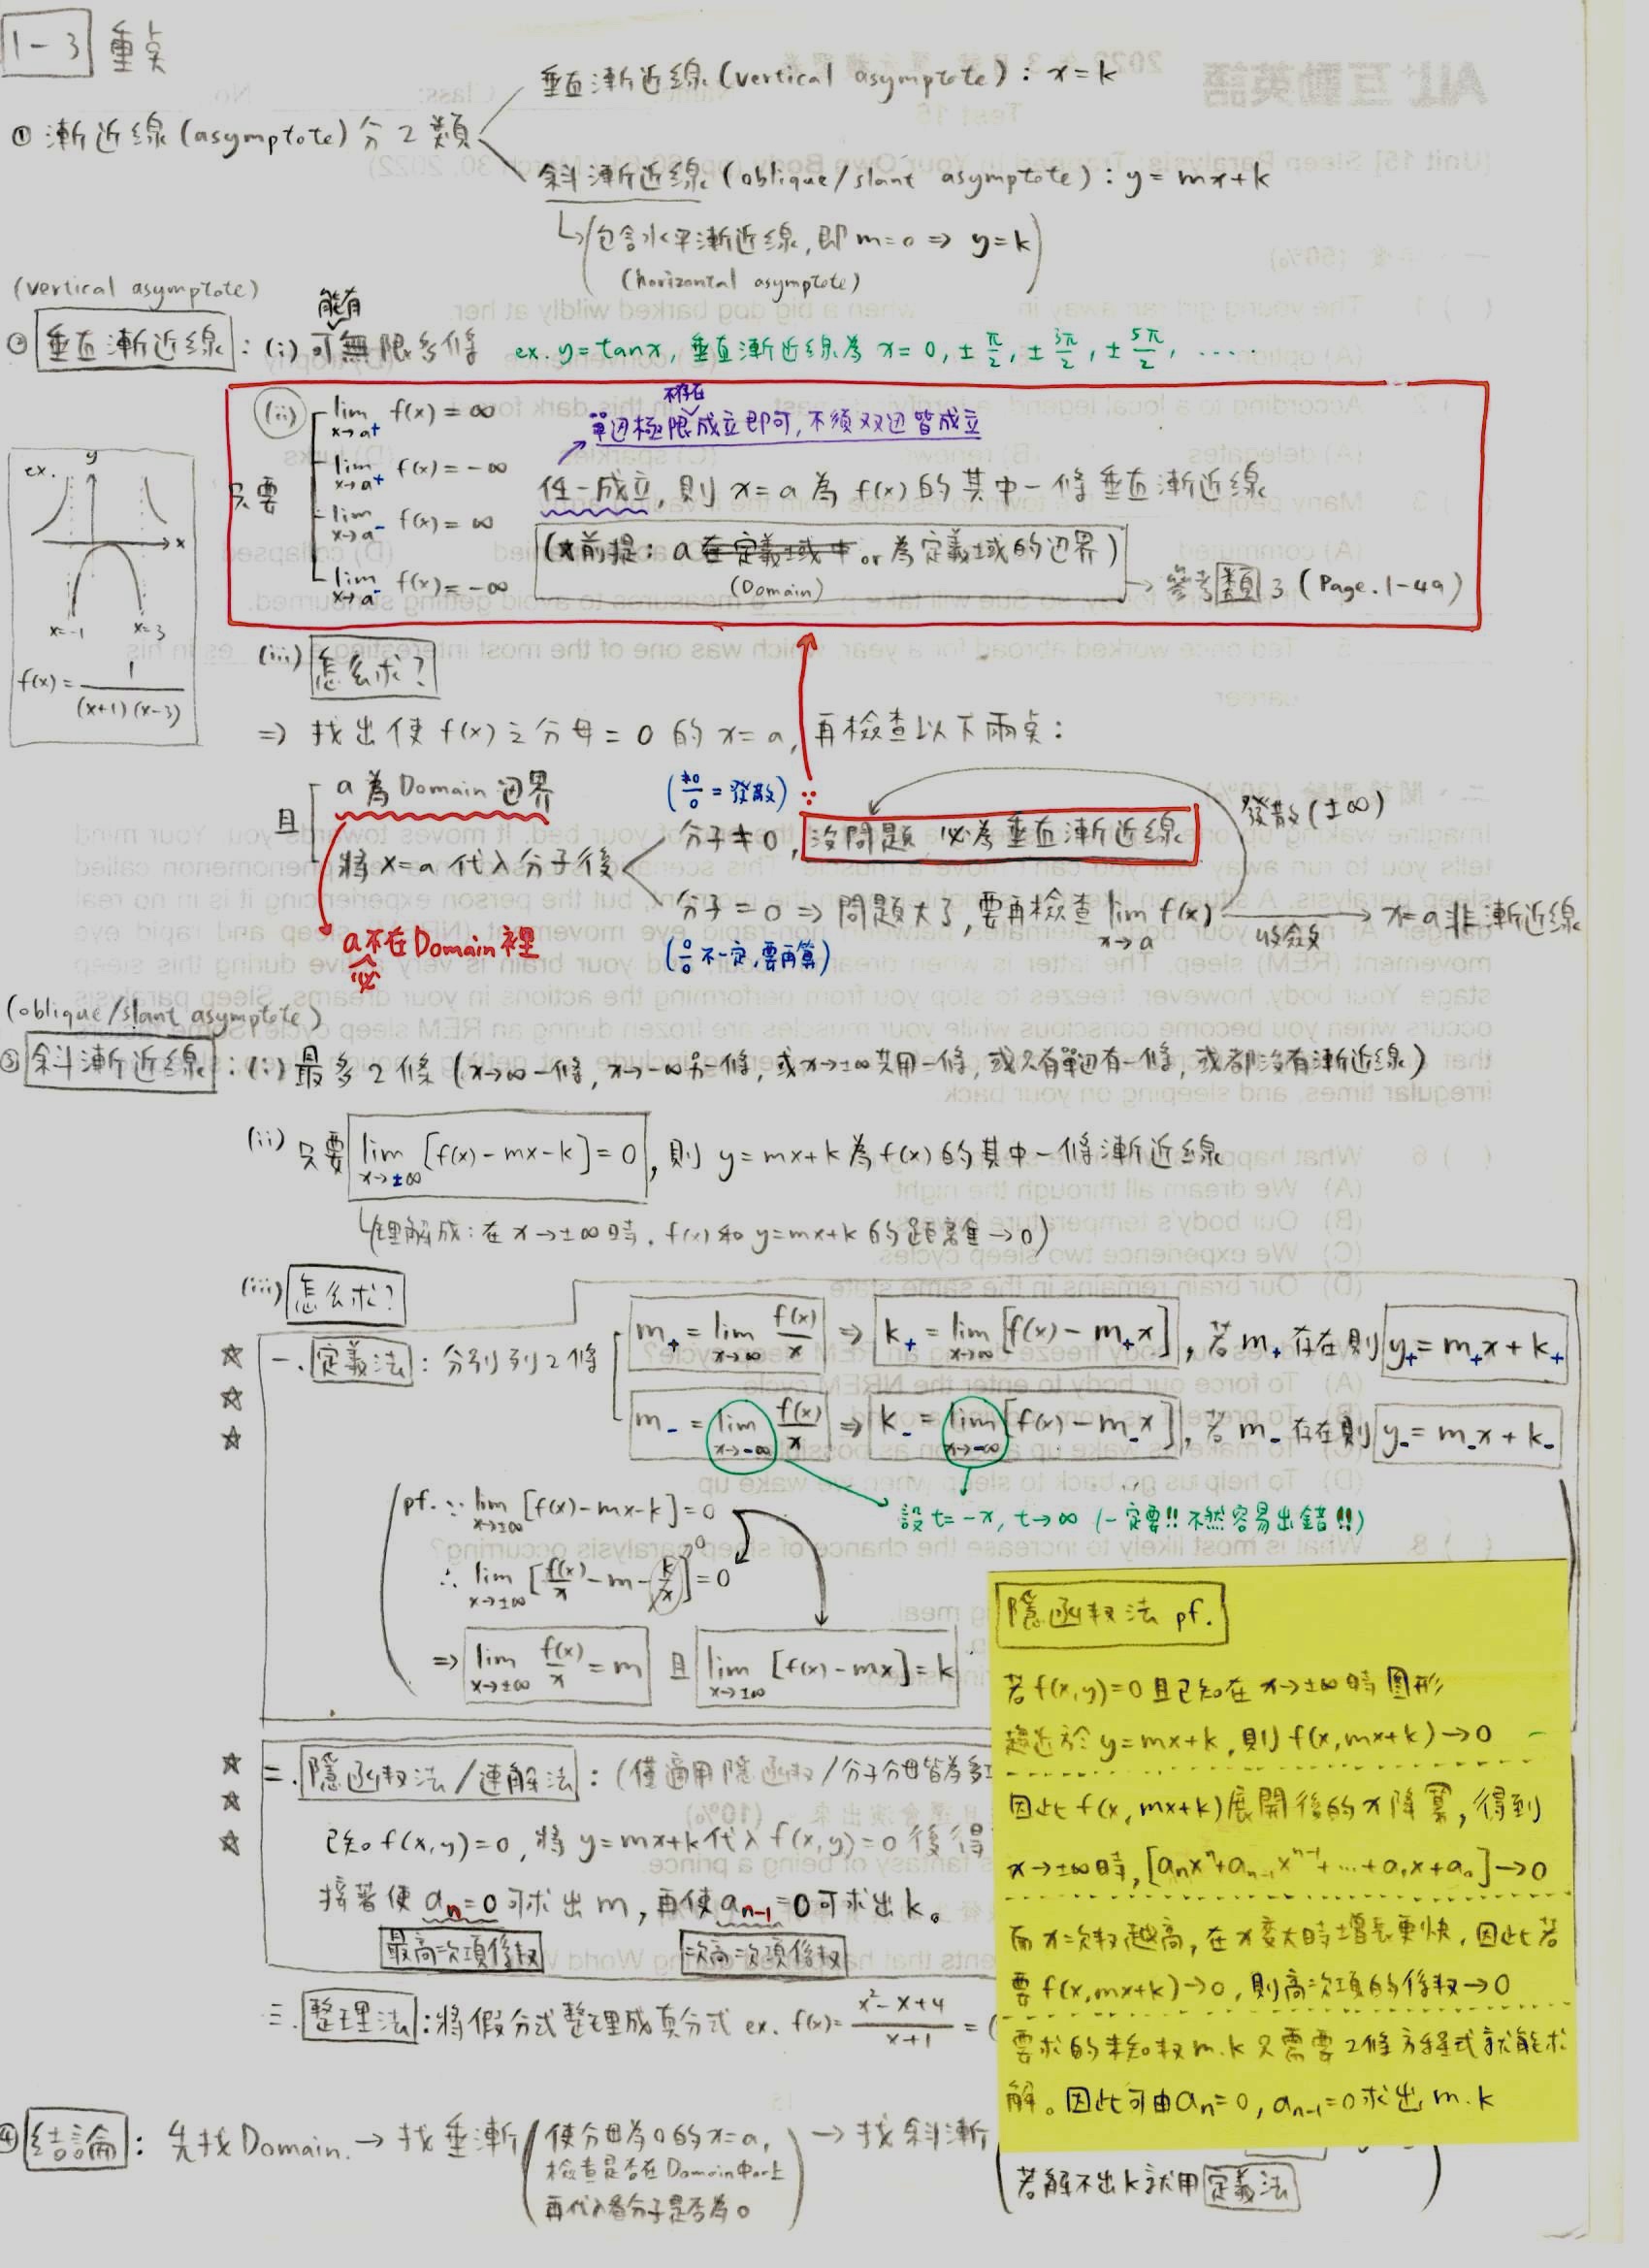 1-3 重點
① 漸近線 (asymptote) 分 2 類
垂直漸近線 (vertical asymptote) : x = k
斜漸近線 (oblique/slant asymptote) : y = mx+k
↳ (包含水平漸近線, 即 m=0 ⇒ y=k)
(horizontal asymptote)
(vertical asymptote)
② 垂直漸近線 : (i) 可能有無限多條 ex. y=tanx, 垂直漸近線為 x = 0, ±π/2, ±3π/2, ±5π/2, ....
(ii) 只要
lim x→a⁺ f(x) = ∞
lim x→a⁺ f(x) = -∞
lim x→a⁻ f(x) = ∞
lim x→a⁻ f(x) = -∞
單邊極限不存在成立即可, 不須双边皆成立
任一成立, 則 x=a 為 f(x) 的其中一條垂直漸近線
(x前提: a 在定義域中 or 為定義域的边界)
(Domain)
→ 參考 類 3 (Page. 1-49)
ex. y
x
x=-1 x=3
f(x) = 1/((x+1)(x-3))
(iii) 怎么求?
⇒ 找出使 f(x) 之分母 = 0 的 x = a, 再檢查以下兩点:
且
a 為 Domain 边界
將 x=a 代入分子後
(≠0/0 = 發散) ∵
分子 ≠ 0, 沒問題 必為垂直漸近線
發散 (±∞)
分子 = 0 ⇒ 問題大了, 要再檢查 lim x→a f(x) 收斂 → x=a 非漸近線
(0/0 不一定, 要再算)
a 必不在 Domain 裡
(oblique/slant asymptote)
③ 斜漸近線 : (i) 最多 2 條 (x→∞ 一條, x→-∞ 另一條, 或 x→±∞ 共用一條, 或只有單边有一條, 或都沒有漸近線)
(ii) 只要 lim x→±∞ [f(x)-mx-k] = 0, 則 y=mx+k 為 f(x) 的其中一條漸近線
↳(理解成: 在 x→±∞ 時, f(x) 和 y=mx+k 的距離→0)
(iii) 怎么求?
☆☆☆ 一. 定義法 : 分別列 2 條
m₊ = lim x→∞ f(x)/x ⇒ k₊ = lim x→∞ [f(x) - m₊x], 若 m₊ 存在則 y₊ = m₊x + k₊
m₋ = lim x→-∞ f(x)/x ⇒ k₋ = lim x→-∞ [f(x) - m₋x], 若 m₋ 存在則 y₋ = m₋x + k₋
設 t = -x, t→∞ (一定要!! 不然容易出錯!!)
pf. ∵ lim x→±∞ [f(x)-mx-k] = 0
∴ lim x→±∞ [f(x)/x - m - k/x] = 0
0
⇒ lim x→±∞ f(x)/x = m 且 lim x→±∞ [f(x)-mx] = k
☆☆☆ 二. 隱函权法 / 速解法 : (僅適用隱函权/分子分母皆為多
已知 f(x,y)=0, 將 y=mx+k 代入 f(x,y)=0 後得
接著使 aₙ=0 可求出 m, 再使 aₙ₋₁=0 可求出 k。
最高次項係权 次高次項係权
三. 整理法 : 將假分式整理成真分式 ex. f(x) = (x²-x+4)/(x+1) = (
④ 結論 : 先找 Domain. → 找垂漸 (使分母為0的 x=a,
檢查是否在 Domain 中or上
再代入看分子是否為0) → 找斜漸
(若解不出 k 就用 定義法)
隱函权法 pf.
若 f(x,y)=0 且已知在 x→±∞ 時 圖形
趨近於 y=mx+k, 則 f(x,mx+k)→0
因此 f(x,mx+k) 展開後的 x 降冪, 得到
x→±∞ 時, [aₙxⁿ+aₙ₋₁xⁿ⁻¹+…+a₁x+a₀]→0
而 x 次权越高, 在 x 變大時增長更快, 因此若
要 f(x,mx+k)→0, 則高次項的係权→0
要求的未知权 m.k 只需要 2 條方程式就能求
解。因此可由 aₙ=0, aₙ₋₁=0 求出 m.k